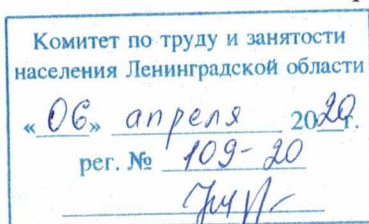 Комитет по труду и занятости
населения Ленинградской области
«06» апреля 2020г.
рег. № 109-20